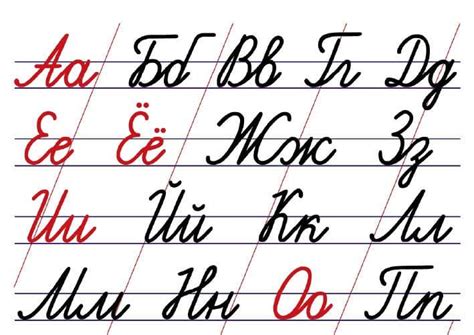 Аа Бб Вв Гг Дд
Ее Ёё Жж Зз
Ии Йй Кк Лл
Мм Нн Оо Пп